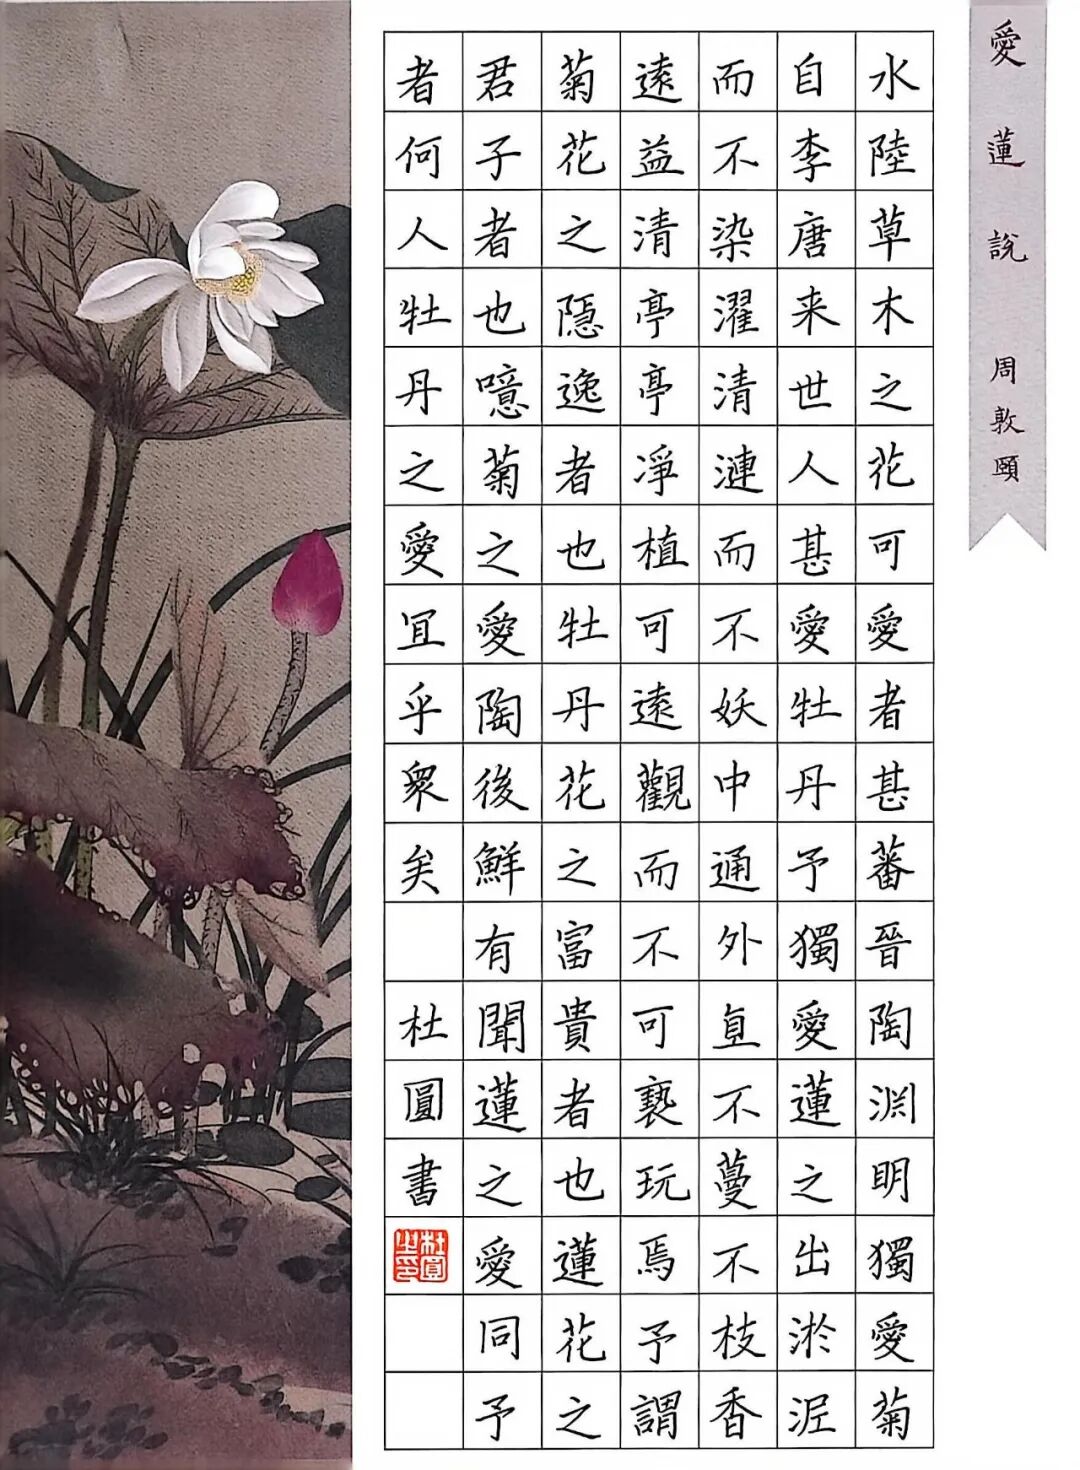 愛蓮說
周敦頤
水陸草木之花可愛者甚蕃晉陶渊明獨愛菊
自李唐来世人甚愛牡丹予獨愛蓮之出淤泥
而不染濯清漣而不妖中通外直不蔓不枝香
遠益清亭亭凈植可遠觀而不可褻玩焉予謂
菊花之隱逸者也牡丹花之富貴者也蓮花之
君子者也噫菊之愛陶後鮮有聞蓮之愛同予
者何人牡丹之愛宜乎衆矣
杜圓書
杜圓之印